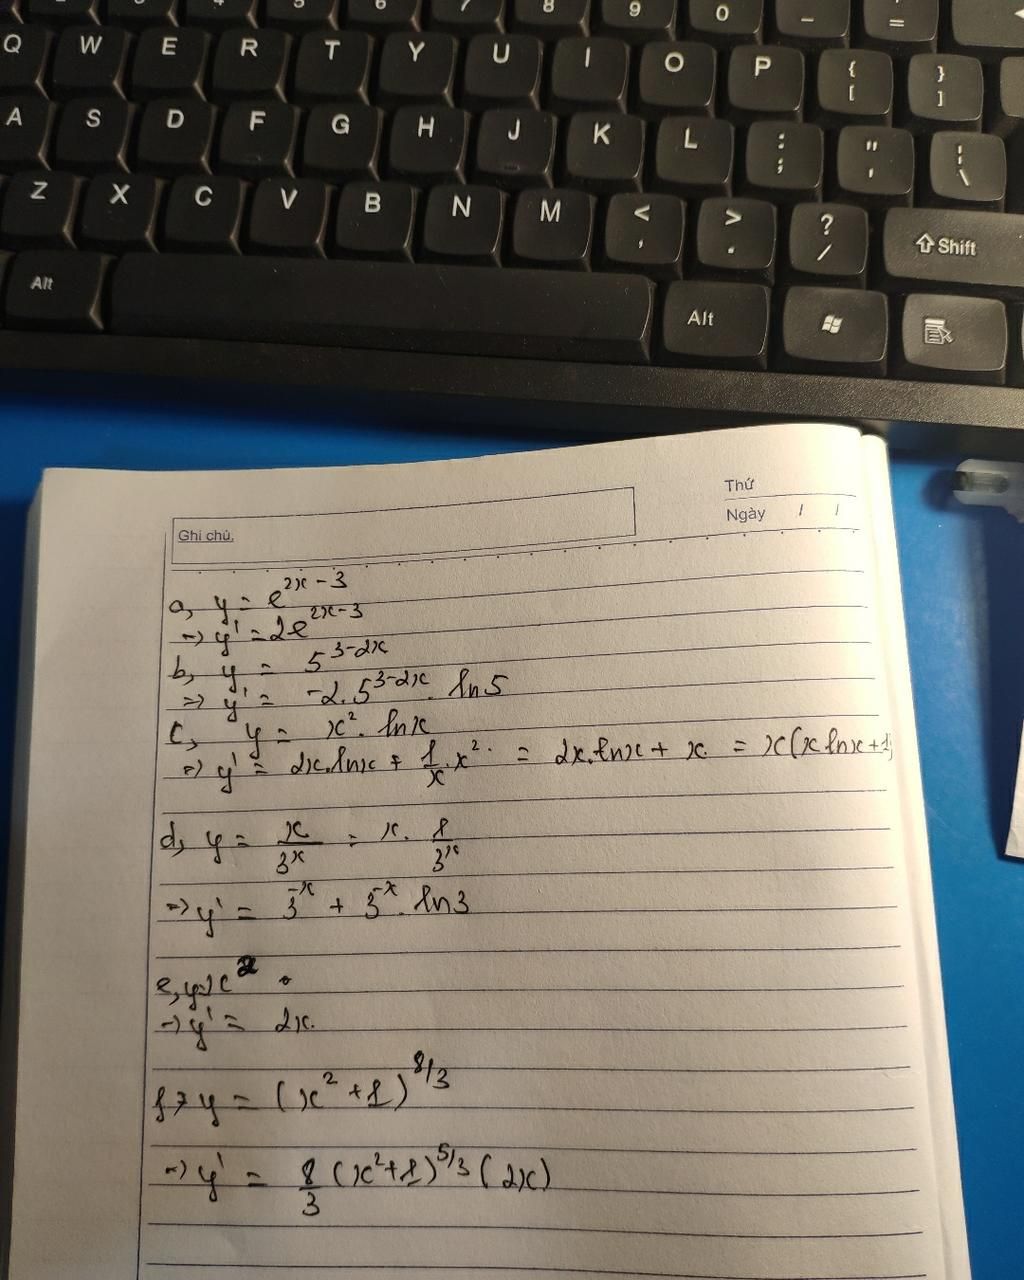 8 9 0 _ =
Q W E R T Y U I O P { [ } ]
A S D F G H J K L : ; " ' \
Z X C V B N M < , > . ? / Shift
Alt Alt
Thứ
Ghi chú. Ngày / /
a, y = e^{2x-3}
=> y' = 2e^{2x-3}
b, y = 5^{3-2x}
=> y' = -2.5^{3-2x}. ln5
c, y = x^2. lnx
=> y' = 2x.lnx + 1/x.x^2. = 2x.lnx + x. = x(x lnx+1)
d, y = x/3^x = x. 1/3^x
=> y' = 3^{-x} + 3^{-x}. ln3
e, y=x^2
=> y' = 2x.
f, y = (x^2+1)^{8/3}
=> y' = 8/3 (x^2+1)^{5/3} (2x)